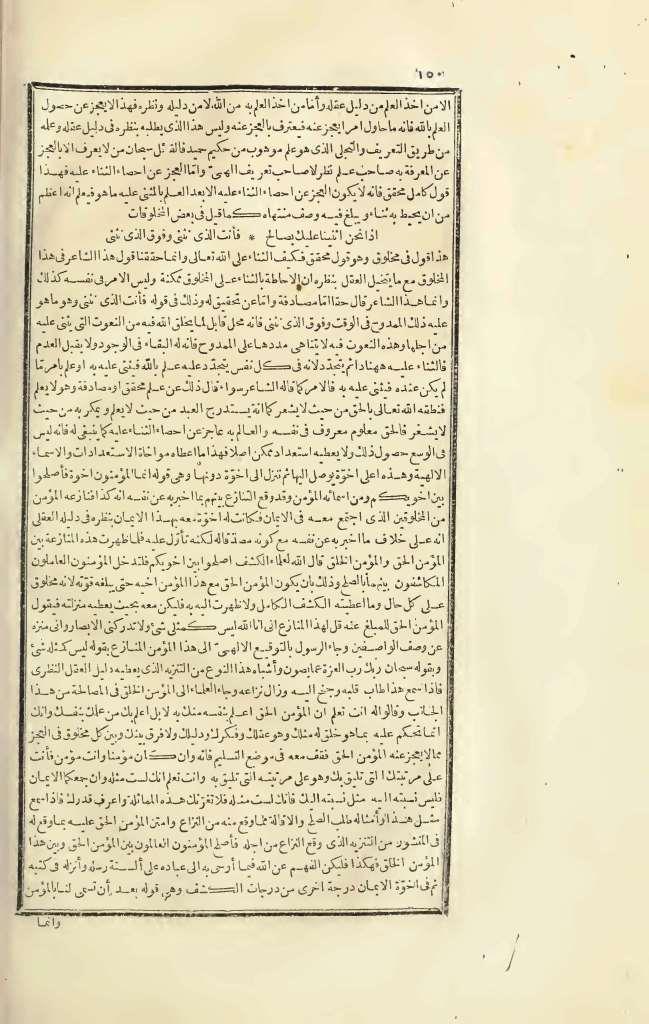 ١٥٠
الا من اخذ العلم من دليل عقله وأما من اخذ العلم به من الله لا من دليله ونظره فهذا لا يعجز عن حصول
العلم بالله فانه ما حاول امرا يعجز عنه فيعترف بالعجز عنه وليس هذا الذى يطلبه بنظره فى دليل عقله وعلمه
من طريق التعريف والتجلى الذى هو علم موهوب من حكيم حميد فالقائل سبحان من لا يعرف الا بالعجز
عن المعرفة به صاحب علم نظر لا صاحب تعريف الهىّ وامّا العجز عن احصاء الثناء عليه فهذا
قول كامل محقق فانه لا يكون العجز عن احصاء الثناء عليه الا بعد العلم بالمثنى عليه ما هو فيعلم انه اعظم
من ان يحيط به ثناء ويبلغ فيه وصف منتهاه كما قيل فى بعض المخلوقات
اذا نحن اثنينا عليك بصالح * فأنت الذى نثنى وفوق الذى نثنى
هذا قول فى مخلوق وهو قول محقق فكيف الثناء على الله تعالى وانما حققنا قول هذا الشاعر فى هذا
المخلوق مع ما يتخيل العقل بنظره ان الاحاطة بالثناء على المخلوق ممكنة وليس الامر فى نفسه كذلك
وانما هذا الشاعر قال حقا امّا مصادفة وامّا عن تحقيق له وذلك فى قوله فأنت الذى نثنى وهو ما هو
عليه ذلك الممدوح فى الوقت وفوق الذى نثنى فانه محل قابل لما يخلق الله فيه من النعوت التى يثنى عليه
من اجلها وهذه النعوت فيه لا يتناهى مددها على الممدوح فانه له البقاء فى الوجود ولا يقبل العدم
فالثناء عليه ههنا دائم يتجدّد لانه فى كل نفس يتجدّد عليه علم بالله فيثنى عليه به او علم بأمر ما
لم يكن عنده فيثنى عليه به فالامر كما قاله الشاعر سواء قال ذلك عن علم محقق او مصادفة وهو لا يعلم
فنطقه الله تعالى بالحق من حيث لا يشعر كما انه يستدرج العبد من حيث لا يعلم ويمكر به من حيث
لا يشعر فالحق معلوم معروف فى نفسه والعالم به عاجز عن احصاء الثناء عليه كما ينبغى له فانه ليس
فى الوسع حصول ذلك ولا يعطيه استعداد ممكن اصلا فهذا ما اعطاه مواخاة الاستعدادات والاسماء
الالهية وهذه اعلى اخوّة يوصل اليها ثم تنزل الى اخوّة دونها وهى قوله انما المؤمنون اخوة فأصلحوا
بين اخويكم ومن اسمائه المؤمن وقد وقع التنازع بينهم بما اخبر به عن نفسه انه كذا فنازعه المؤمن
من المخلوقين الذى اجتمع معه فى الايمان فكانت له اخوّة معه بهذا الايمان بنظره فى دليله العقلى
انه على خلاف ما اخبر به عن نفسه مع كونه مصدّقا له لكنه تأوّل عليه فلما ظهرت هذه المنازعة بين
المؤمن الحق والمؤمن الخلق قال الله لعلماء الكشف اصلحوا بين اخويكم فلتدخل المؤمنون العاملون
المكاشفون بينهما بالصلح وذلك بأن يكون المؤمن الحق مع هذا المؤمن اخيه حتى يبلغه قوّته لانه مخلوق
على كل حال وما اعطيته الكشف الكامل ولا ظهرت اليه به فليكن معه بحيث يعطيه منزلته فيقول
المؤمن الحق للمبلغ عنه قل لهذا المنازع انى انا الله ليس كمثلى شئ ولا تدركنى الابصار وانى منزه
عن وصف الواصفين وجاء الرسول بالتوقيع الالهىّ الى هذا المؤمن المنازع بقوله ليس كمثله شئ
وبقوله سبحان ربك رب العزة عما يصفون وأشباه هذا النوع من التنزيه الذى يعطيه دليل العقل النظرى
فاذا سمع هذا طاب قلبه ورجع اليه وزال نزاعه وجاء العلماء الى المؤمن الخلق فى المصالحة من هذا
الجانب وقالوا له انت تعلم ان المؤمن الحق اعلم بنفسه منك به لا بل اعلم بك من علمك بنفسك وانك
انما تحكم عليه بما هو خلق له مثلك وهو عقلك وفكرك ودليلك ولا فرق بينك وبين كل مخلوق فى العجز
مما لا يعجز عنه المؤمن الحق فقف معه فى موضع التسليم فانه وان كان مؤمنا وانت مؤمن فأنت
على مرتبتك التى تليق بك وهو على مرتبته التى تليق به وانت تعلم انك لست مثله وان جمعكما الايمان
فليس نسبته اليه مثل نسبته اليك فانك لست مثله فلا تغرّنك هذه المماثلة واعرف قدرك فاذا سمع
مثل هذا وأمثاله طلب الصلح والاقالة مما وقع منه من النزاع وامتن المؤمن الحق عليه بما وقع له
فى المنشور من التنزيه الذى وقع النزاع من اجله فأصلح المؤمنون العالمون بين المؤمن الحق وبين هذا
المؤمن الخلق فهكذا فليكن الفهم عن الله فيما أوحى به الى عباده على ألسنة رسله وأنزله فى كتبه
ثم فى اخوّة الايمان درجة اخرى من درجات الكشف وهى قوله بعد أن تسمى لنا بالمؤمن
وانما